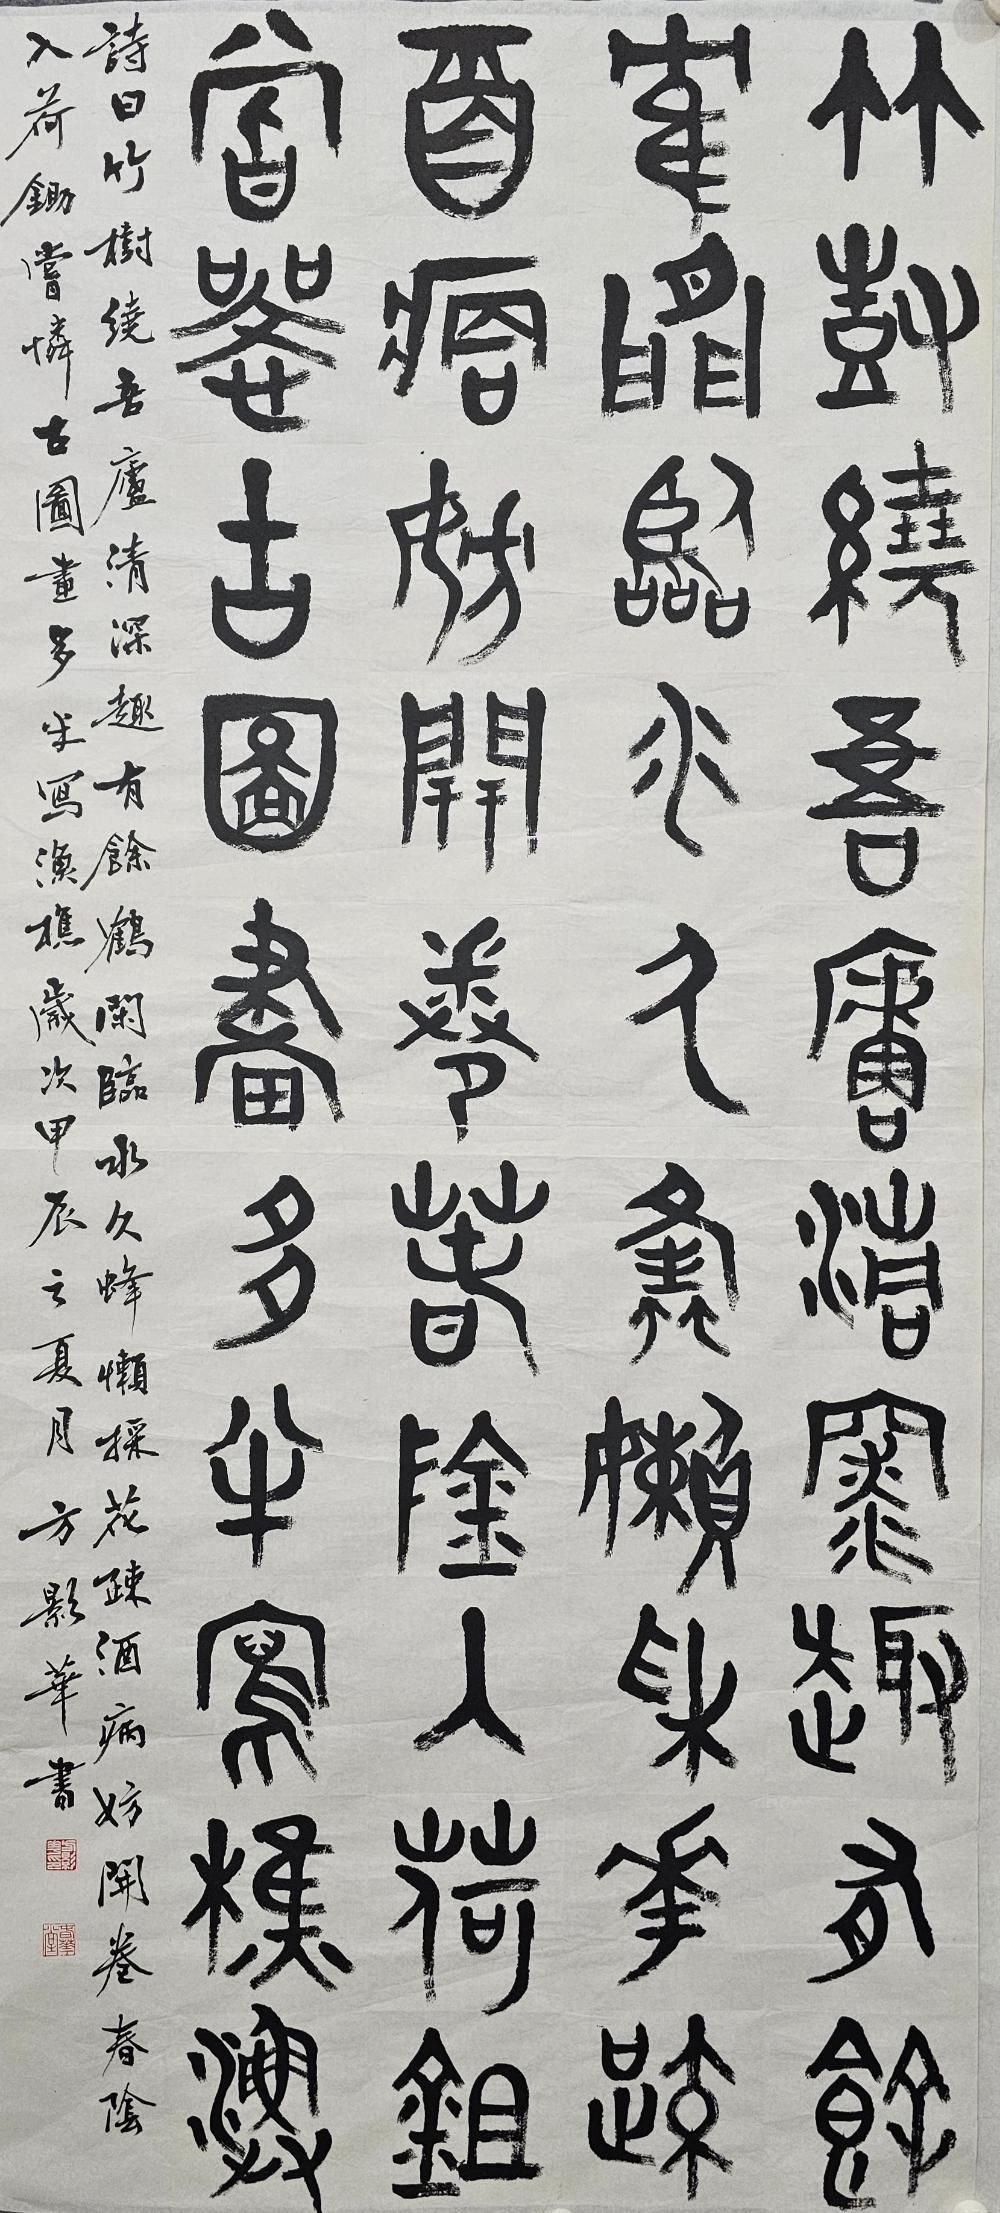 竹樹繞吾廬清深趣有餘
隺閒臨水久蜂懶采花疎
酉病妨開卷春陰人荷鉏
嘗憐古圖畫多半寫樵漁
詩曰竹樹繞吾廬清深趣有餘鶴閑臨水久蜂懶採花疎酒病妨開卷春陰
入荷鋤嘗憐古圖畫多半寫漁樵歲次甲辰之夏月方影華書